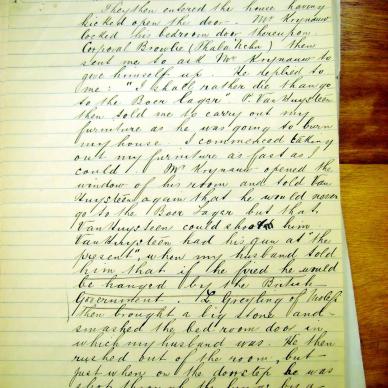 They then entered the house having
kicked open the door. Mr Krynauw
locked his bedroom door thereupon
Corporal Brownlie ( then
sent me to ask Mr Krynauw to
give himself up. He replied to
me: "I shall rather die than go
to the Boer lager". P. Van Huysteen
then told me to carry out my
furniture as he was going to burn
my house. I commenced taking
out my furniture as fast as I
could. Mr Krynauw opened the
window of his room and told Van
Huysteen again that he would never
go to the Boer Lager but that
Van Huysteen could shoot him
Van Huysteen had his gun at the
present", when my husband told
him that if he fired he would
be hanged by the British
Government. Greyling of
then brought a big stone and
smashed the bed room door in
which my husband was. He then
rushed out of the room, but
just when on the doorstep he was